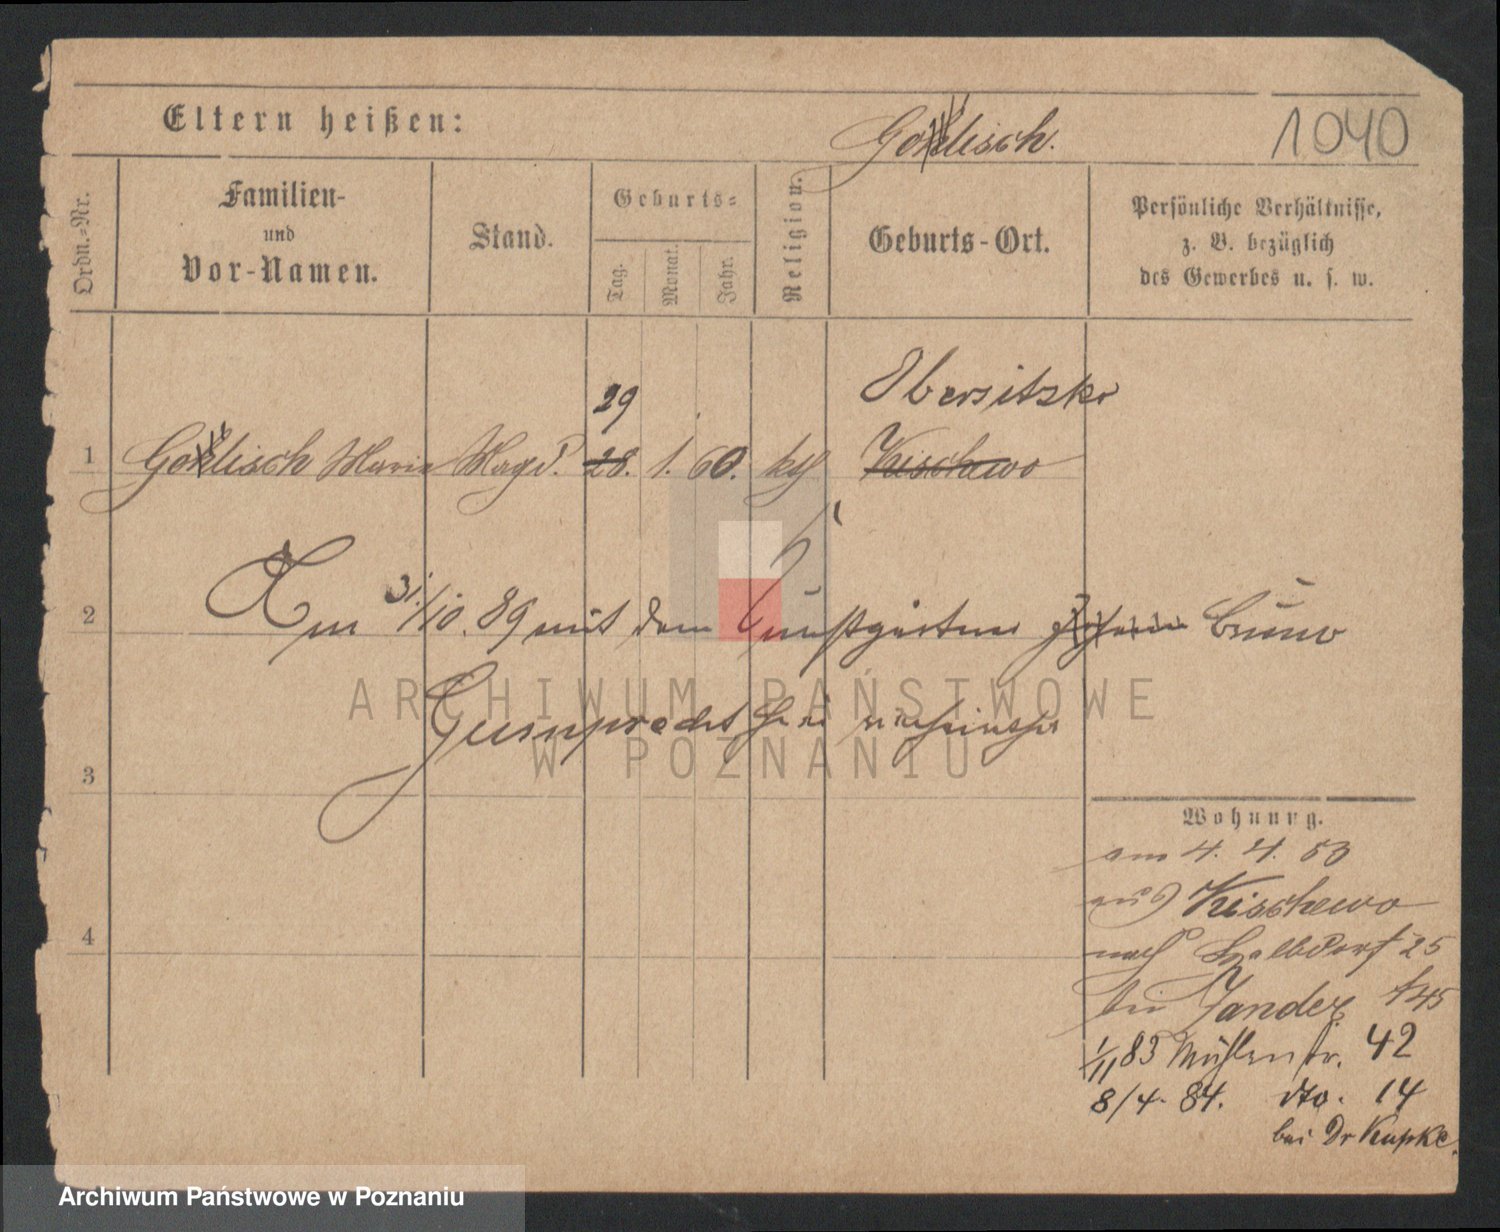 Eltern heißen:
Golisch.
1040
Ordn.-Nr.
Familien-
und
Vor-Namen.
Stand.
Geburts-
Tag.
Monat.
Jahr.
Religion.
Geburts-Ort.
Persönliche Verhältnisse,
z. B. bezüglich
des Gewerbes u. s. w.
29
Obersitzko
1 Golisch Maria Magd. 28. 1. 60. kth Kischewo
2 Am 31/10. 89 mit dem Kunstgärtner Bruno
Gumprecht hier verheirathet
3
4
Wohnung.
am 4. 4. 83
aus Kischewo
nach Halbdorf 25
bei Jander
1/11 83 Mühlenstr. 42
8/4. 84. dto. 14
bei Dr Kupke.
ARCHIWUM PAŃSTWOWE
W POZNANIU
Archiwum Państwowe w Poznaniu